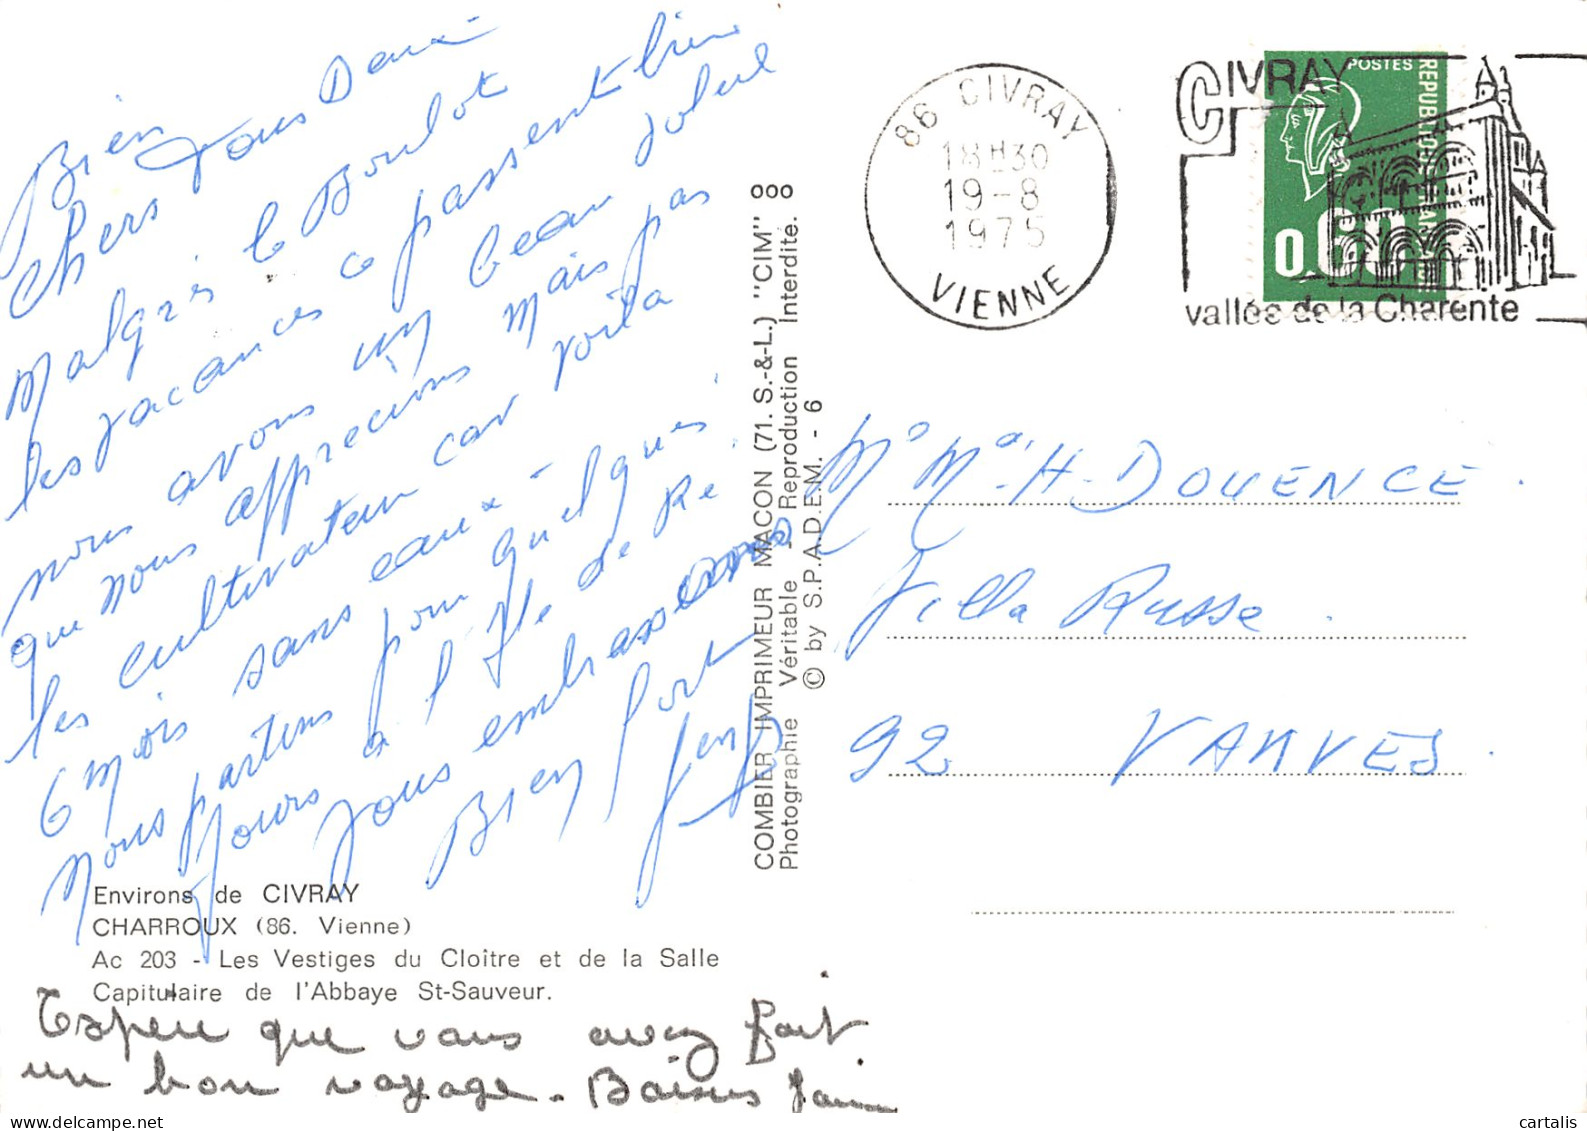 Bien
chers vous Deux
Malgrès le Boulot
les vacances ce passent bien
nous avons un beau soleil
que nous apprecions Mais pas
les cultivateur car voila
6 mois sans eaux -
Nous partons pour quelques
Jours a l'Ile de Re.
Vous embrassons
Bien fort
Environs de CIVRAY
CHARROUX (86. Vienne)
Ac 203 - Les Vestiges du Cloître et de la Salle
Capitulaire de l'Abbaye St-Sauveur.
Espere que vous avez fait
un bon voyage - Baisers
COMBIER IMPRIMEUR MACON (71. S.-&-L.) "CIM"
Photographie Véritable - Reproduction Interdite.
© by S.P.A.D.E.M. - 6
86 CIVRAY
18H30
19-8
1975
VIENNE
CIVRAY
vallée de la Charente
POSTES
REPUBLIQUE FRANCAISE
0.60
Mr Me H. DOUENCE.
Villa Russe.
92 VANVES.
cartalis
www.delcampe.net